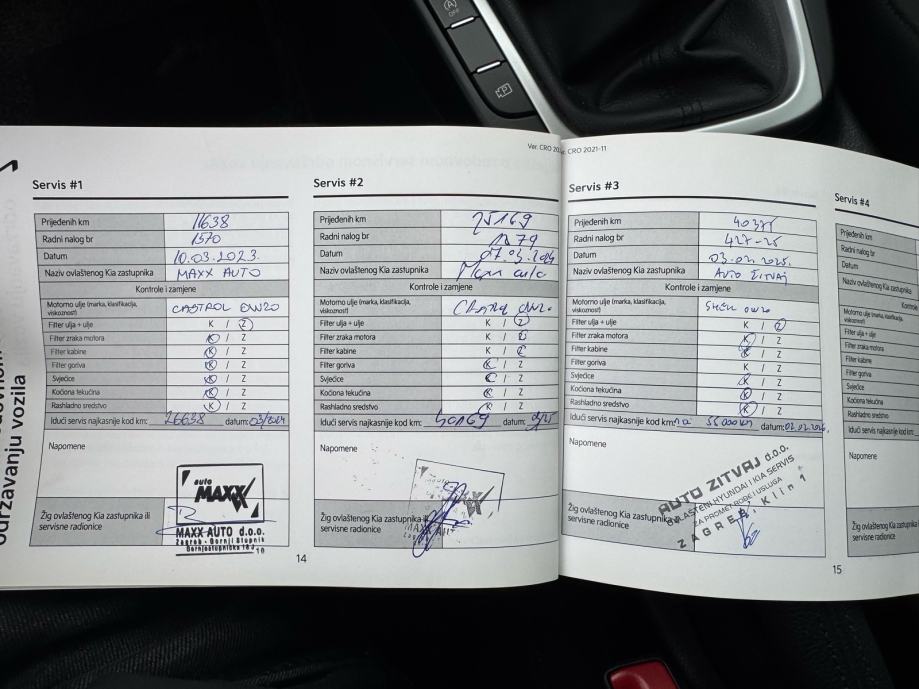 OFF
P
održavanju vozila
Ver. CRO 2021-11
Servis #1
Prijeđenih km 11638
Radni nalog br 1570
Datum 10.03.2023.
Naziv ovlaštenog Kia zastupnika MAXX AUTO
Kontrole i zamjene
Motorno ulje (marka, klasifikacija, viskoznost) CASTROL 0W20
Filter ulja + ulje K / Z
Filter zraka motora K / Z
Filter kabine K / Z
Filter goriva K / Z
Svjećice K / Z
Kočiona tekućina K / Z
Rashladno sredstvo K / Z
Idući servis najkasnije kod km: 26638 datum: 03/2024
Napomene
Žig ovlaštenog Kia zastupnika ili
servisne radionice
auto
MAXX
MAXX AUTO d.o.o.
Zagreb - Gornji Stupnik
Gornjostupnička
14
Servis #2
Prijeđenih km 25169
Radni nalog br
Datum 07.03.2024
Naziv ovlaštenog Kia zastupnika
Kontrole i zamjene
Motorno ulje (marka, klasifikacija, viskoznost) Castrol 0W20
Filter ulja + ulje K / Z
Filter zraka motora K / Z
Filter kabine K / Z
Filter goriva K / Z
Svjećice K / Z
Kočiona tekućina K / Z
Rashladno sredstvo K / Z
Idući servis najkasnije kod km: 40169 datum:
Napomene
Žig ovlaštenog Kia zastupnika
servisne radionice
Servis #3
Prijeđenih km
Radni nalog br 427-25
Datum 03.02.2025.
Naziv ovlaštenog Kia zastupnika AUTO ŽITVAJ
Kontrole i zamjene
Motorno ulje (marka, klasifikacija, viskoznost) SHELL 0W20
Filter ulja + ulje K / Z
Filter zraka motora K / Z
Filter kabine K / Z
Filter goriva K / Z
Svjećice K / Z
Kočiona tekućina K / Z
Rashladno sredstvo K / Z
Idući servis najkasnije kod km: na 55000km datum: 02.02.2026.
Napomene
Žig ovlaštenog Kia zastupnika
servisne radionice
AUTO ZITVAJ d.o.o.
OVLAŠTENI HYUNDAI I KIA SERVIS
ZA PROMET, ROBE I USLUGA
ZAGREB, Klin 1
15
Servis #4
Prijeđenih km
Radni nalog br
Datum
Naziv ovlaštenog Kia zastupnika
Motorno ulje (marka, klasifikacija, viskoznost)
Filter ulja + ulje
Filter zraka motora
Filter kabine
Filter goriva
Svjećice
Kočiona tekućina
Rashladno sredstvo
Idući servis najkasnije kod
Napomene
Žig ovlaštenog Kia zastupnika
servisne radionice